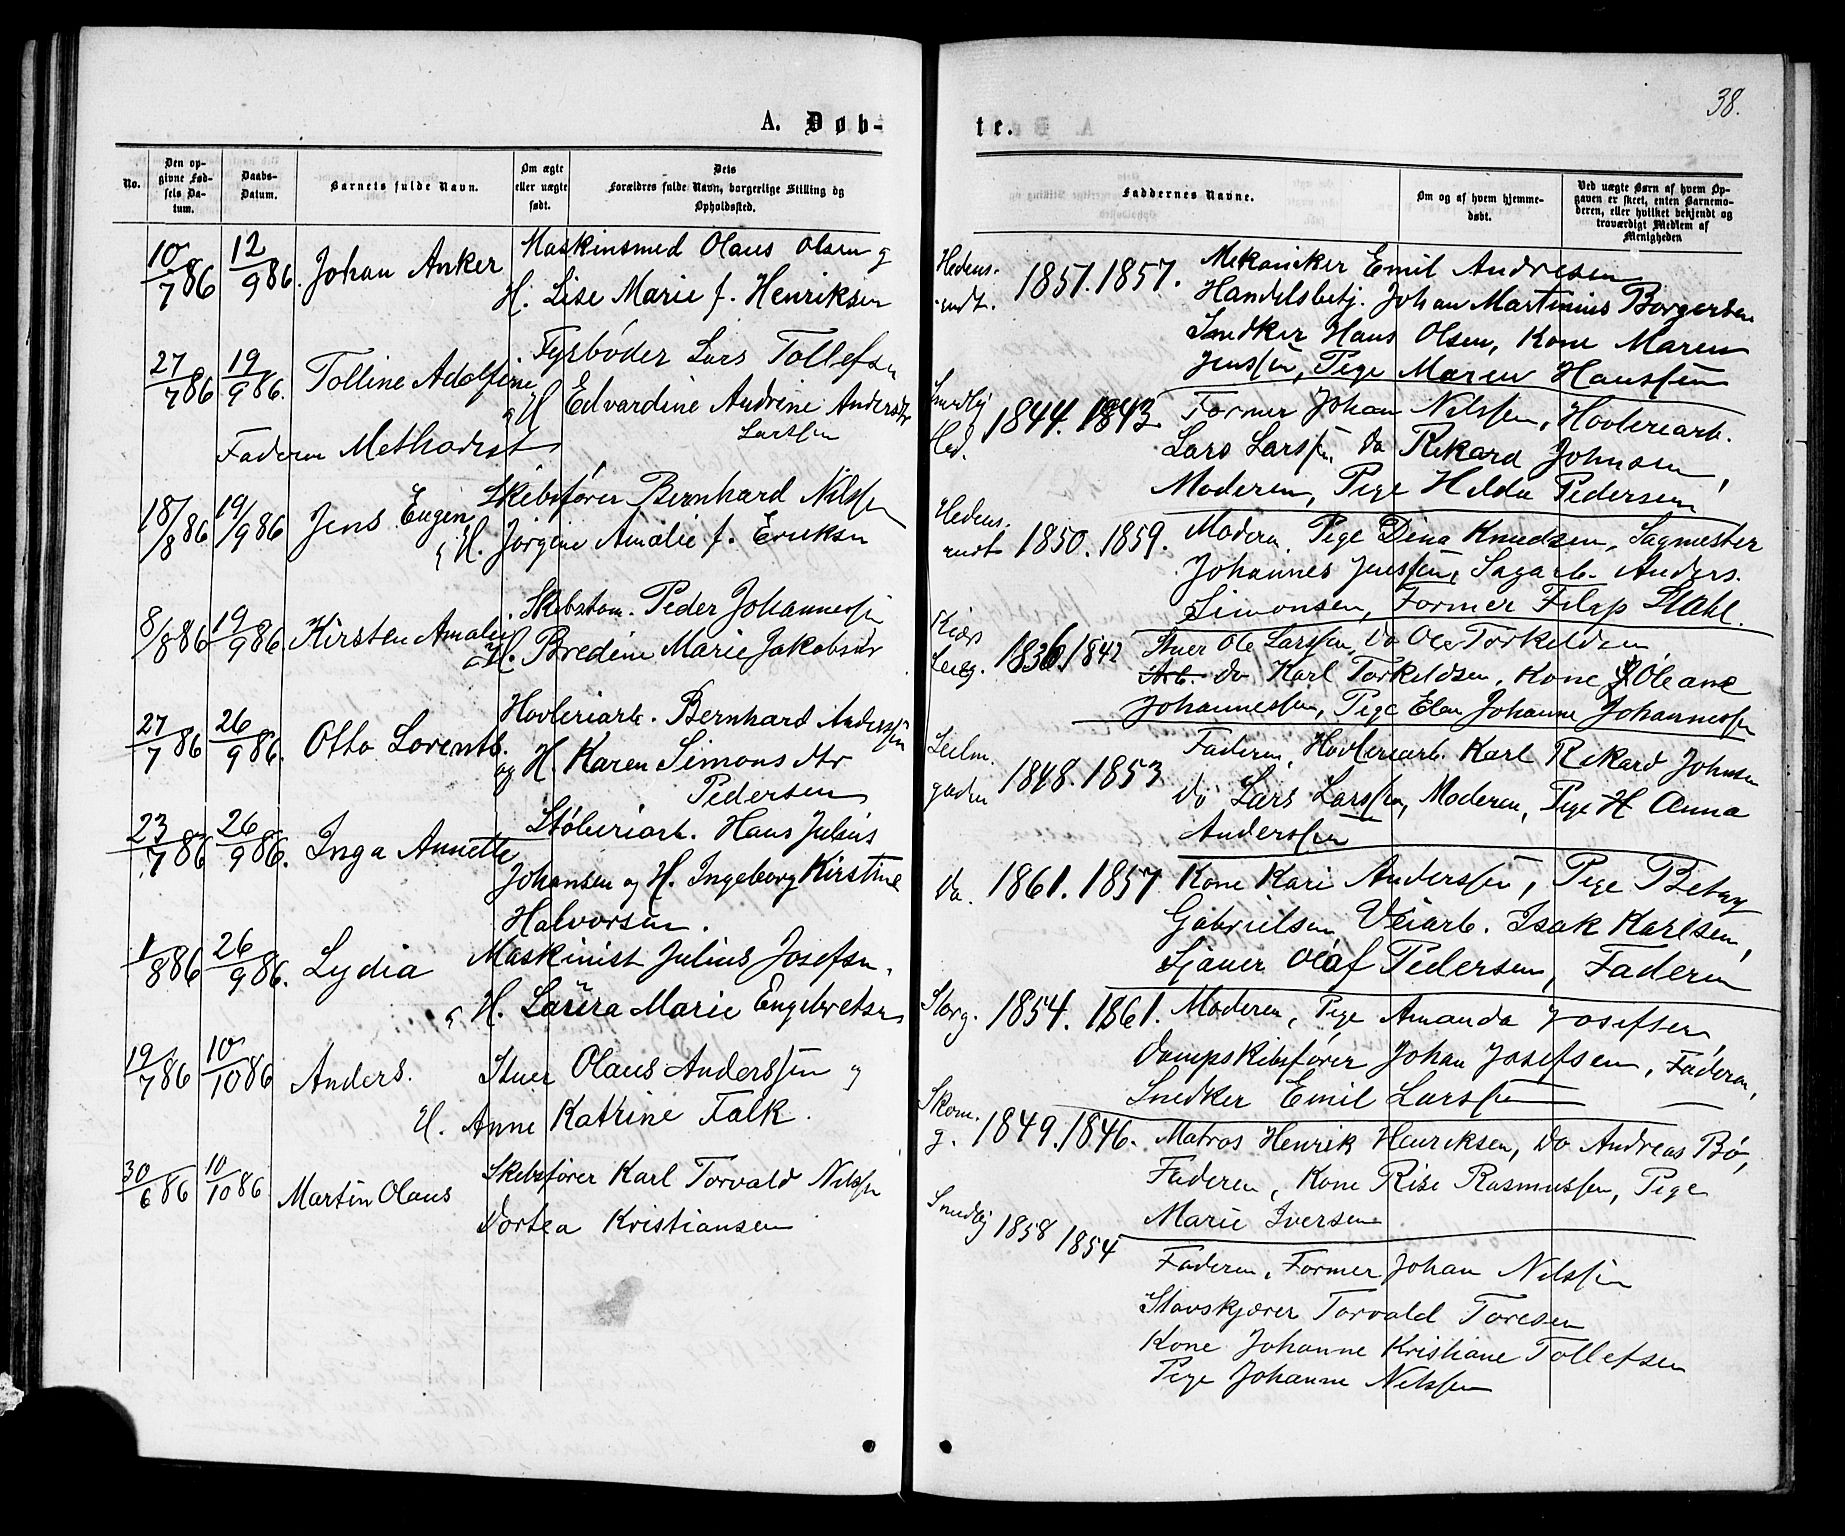 38.
A. Døb-
te.
No.
Den op-
givne Fød-
sels Da-
tum.
Daabs-
Datum.
Barnets fulde Navn.
Om ægte
eller uægte
født.
Dets
Forældres fulde Navn, borgerlige Stilling og
Opholdssted.
Faddernes Navne.
Om og af hvem hjemme-
døbt.
Ved uægte Børn af hvem Op-
gaven er skeet, enten Barnemo-
deren, eller hvilket bekjendt og
troværdigt Medlem af
Menigheden
10/7 86 12/9 86. Johan Anker
Maskinsmed Olaus Olsen og
H. Lise Marie f. Henriksen
27/7 86 19/9 86. Tolline Adolfine
Fyrbøder Lars Tollefsen
og H Edvardine Andrine Andersdtr
Larssen
Faderen Methodist
18/8 86 19/9 86 Jens Eugen
Skibsfører Bernhard Nilssen
og H. Jørgine Amalie f. Eriksen
8/8 86 19/9 86. Kirsten Amalie
Skibstøm. Peder Johannessen
og H. Bredine Marie Jakobsdtr
27/7 86 26/9 86. Otto Lorents.
Høvleriarb. Bernhard Anderssen
og H. Karen Simonsdtr
Pedersen
23/7 86 26/9 86. Inga Annette
Støberiarb. Hans Julius
Johansen og H. Ingeborg Kirstine
Halvorsen.
1/8 86 26/9 86. Lydia
Maskinist Julius Josefsen.
og H. Laura Marie Engebretsen
19/7 86 10/10 86 Anders.
Stuer Olaus Anderssen og
H. Anne Katrine Falk.
30/6 86 10/10 86 Martin Olaus
Skibsfører Karl Torvald Nilssen
Dortea Kristiansen
Hedens-
rudt. 1851. 1857.
Mekaniker Emil Andresen
Handelsbetj. Johan Martinius Borgersen
Snedker Hans Olsen, Kone Maren
Jenssen, Pige Maren Hanssen
1844. 1843
Former Johan Nilssen, Høvleriarb.
Lars Larssen, do Rikard Johnsen,
Moderen, Pige Hilda Pedersen
Hedens-
rudt 1850. 1859.
Moderen, Pige Dina Knudsen, Sagmester
Johannes Jenssen, Sagarb. Anders
Simonsen, Former Filip Stahl.
1836. 1842
Stuer Ole Larssen, do Ole Torkeldsen
Arb. do Karl Torkildsen, Kone Oleane
Johannessen, Pige Elen Johanne Johannessen
gaden 1848. 1853
Faderen, Høvleriarb. Karl Rikard Johnsen
do Lars Larssen, Moderen, Pige H Anna
Anderssen
do. 1861. 1857
Kone Kari Anderssen, Pige Betsy
Gabrielsen Veiarb. Isak Karlsen,
Sjauer Olaf Pedersen, Faderen
Storg. 1854. 1861.
Moderen, Pige Amanda Josefsen,
Dampskibsfører Johan Josefsen, Faderen,
Snedker Emil Larssen
Skom.
g. 1849. 1846.
Matros Henrik Henriksen, do Andreas Bø,
Faderen, Kone Rise Rasmussen, Pige
Marie Iversen
1858 1854
Faderen, Former Johan Nilssen
Stavskjærer Torvald Toresen
Kone Johanne Kristiane Tollefsen
Pige Johanne Nilssen